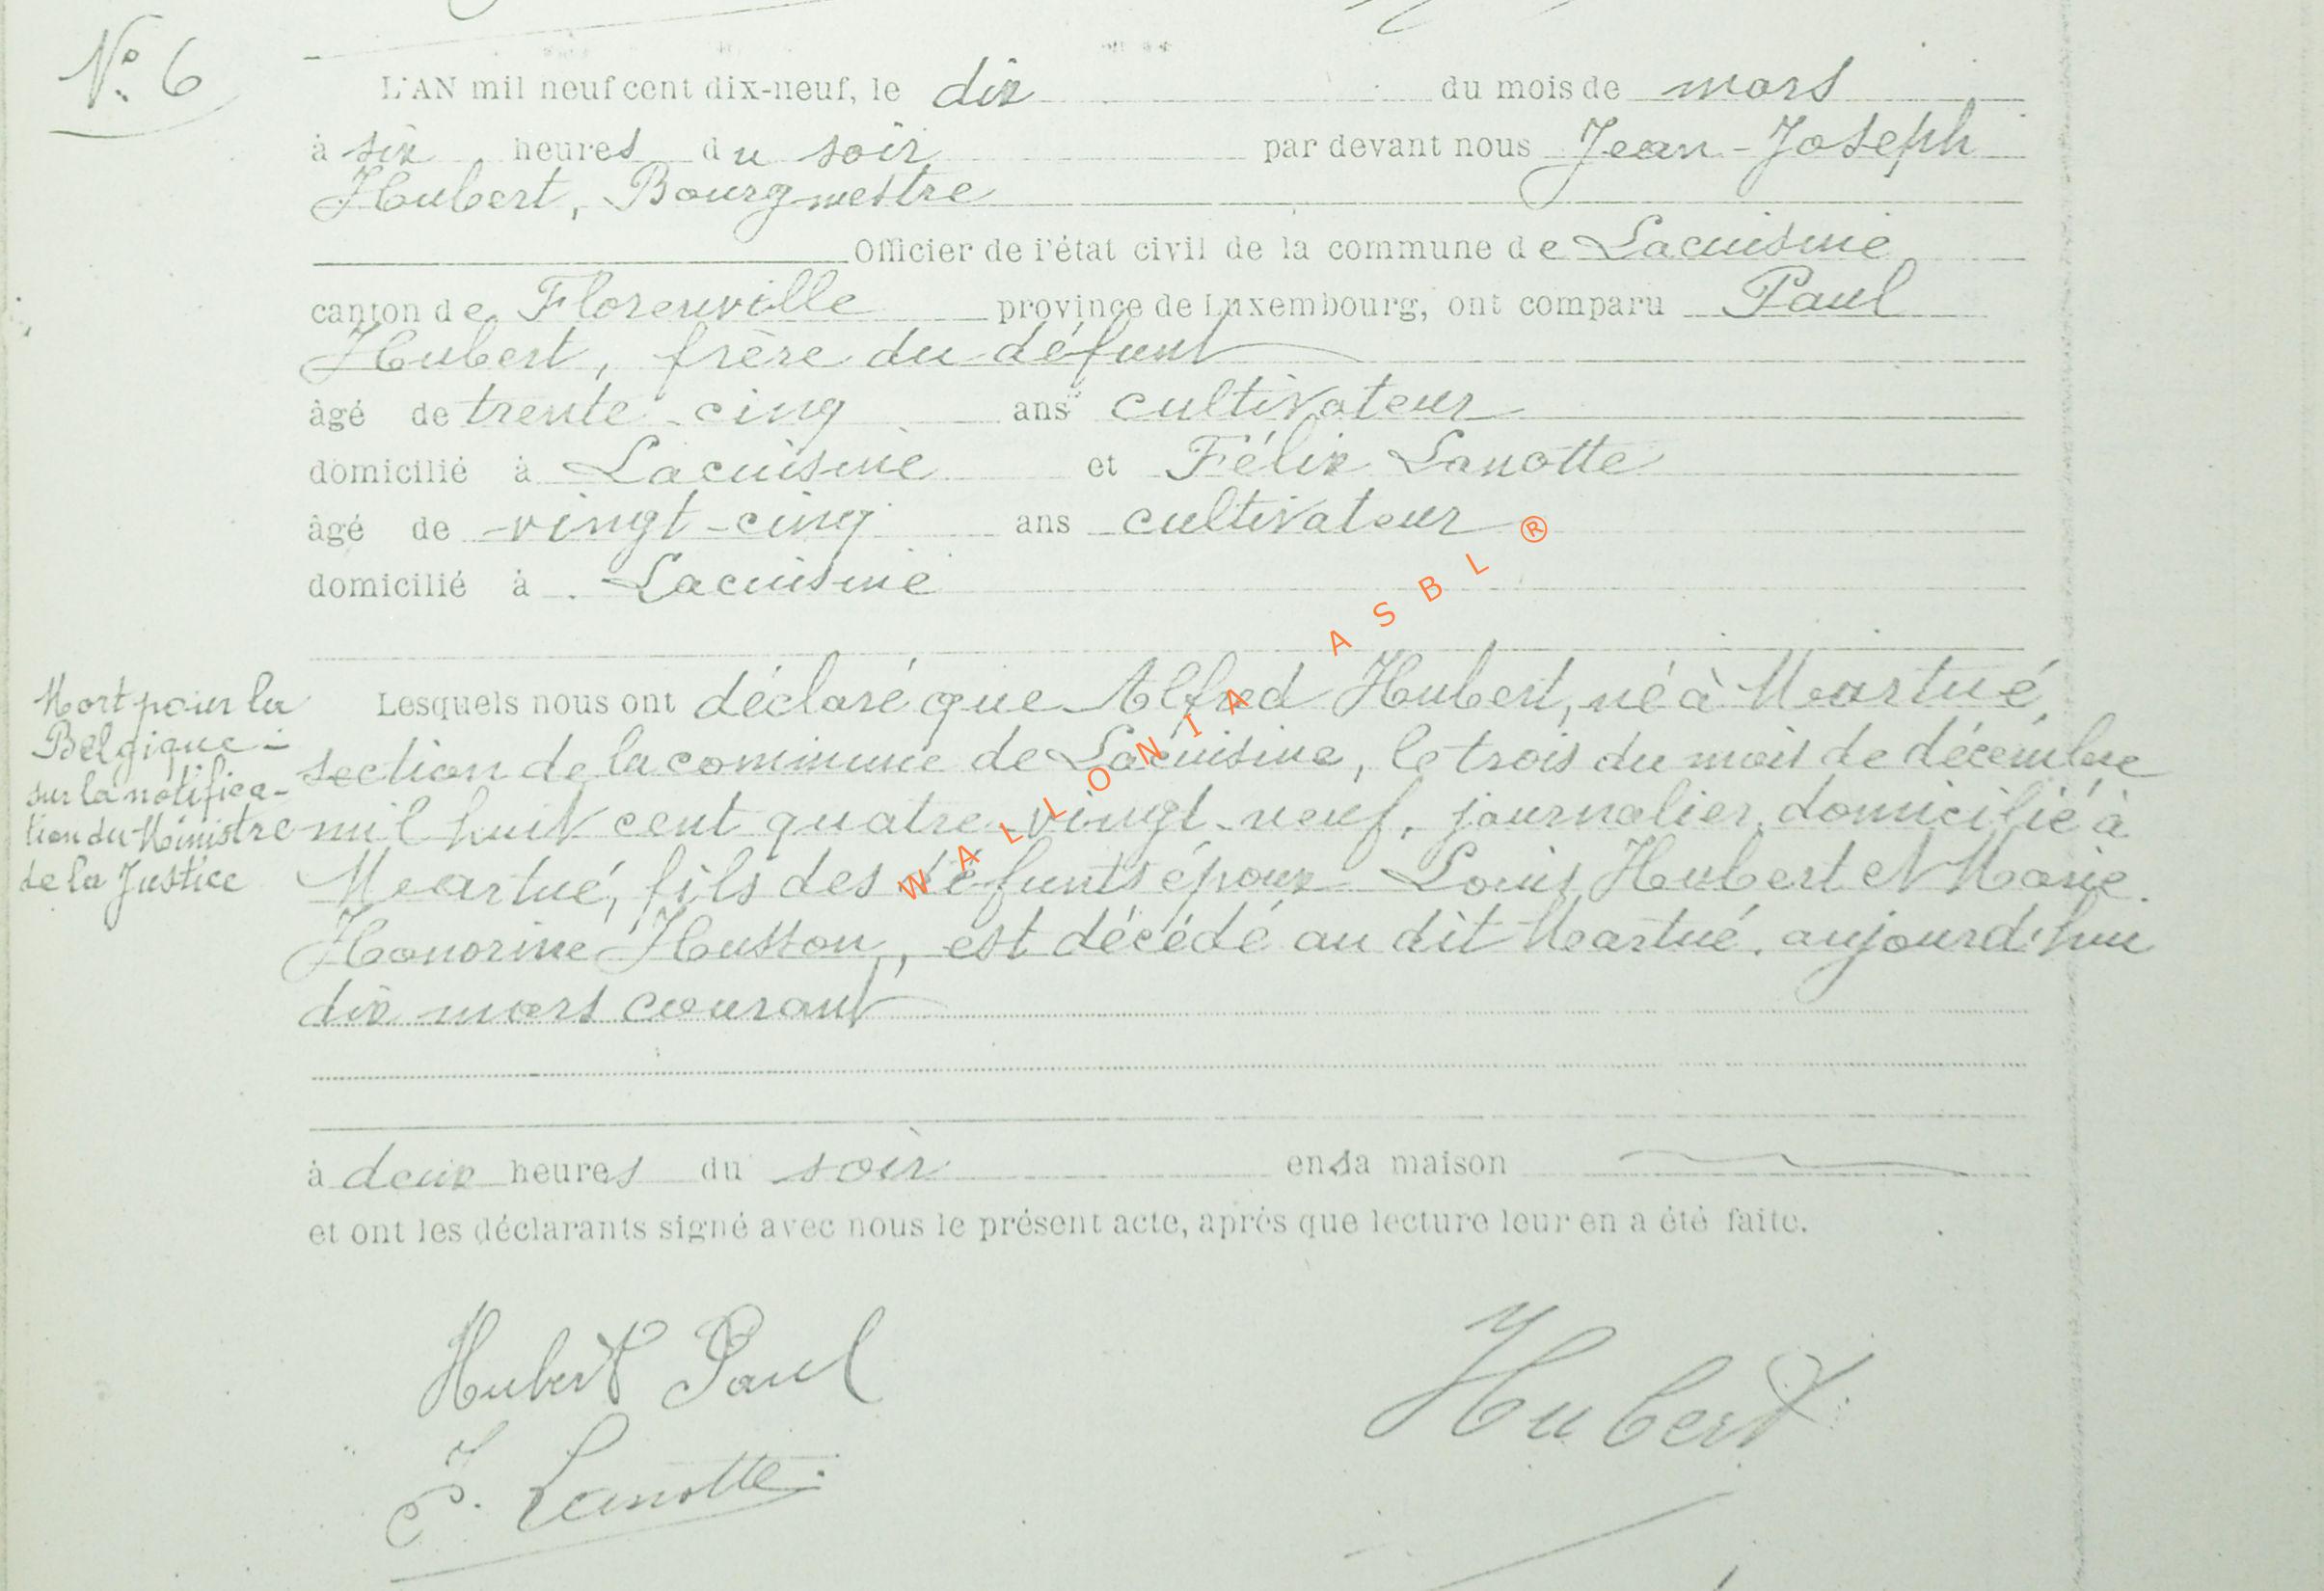 N° 6
L'AN mil neuf cent dix-neuf, le dix du mois de mars
à six heures du soir par devant nous Jean-Joseph
Hubert, Bourgmestre
Officier de l'état civil de la commune de Lacuisine
canton de Florenville province de Luxembourg, ont comparu Paul
Hubert, frère du défunt
âgé de trente-cinq ans cultivateur
domicilié à Lacuisine et Félix Lanotte
âgé de vingt-cinq ans cultivateur
domicilié à Lacuisine
Mort pour la
Belgique -
sur la notifica-
tion du Ministre
de la Justice
Lesquels nous ont déclaré que Alfred Hubert, né à Martué,
section de la commune de Lacuisine, le trois du mois de décembre
mil huit cent quatre-vingt-neuf, journalier, domicilié à
Martué, fils des défunts époux Louis Hubert et Marie
Honorine Husson, est décédé au dit Martué, aujourd'hui
dix mars courant
à deux heures du soir en sa maison
et ont les déclarants signé avec nous le présent acte, après que lecture leur en a été faite.
Hubert Paul
Hubert
F. Lanotte
WALLONIA ASBL ®